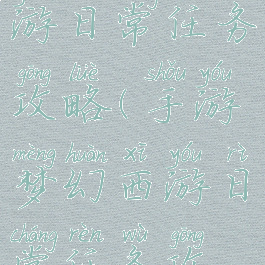 游日常任务
gōng lüè shǒu yóu
攻略(手游
mèng huàn xī yóu rì
梦幻西游日
cháng rèn wù gōng
常任务攻